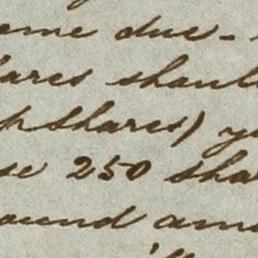 eme due -
ares should
pshares) yo
se 250 sha
ound am